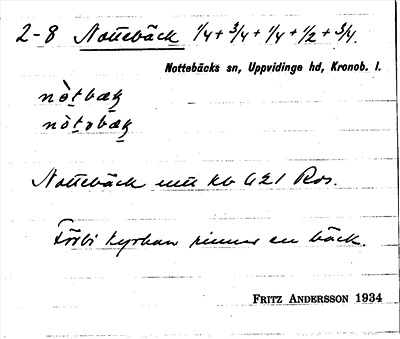 2-8 Nottebäck 1/4 + 3/4 + 1/4 + 1/2 + 3/4.
Nottebäcks sn, Uppvidinge hd, Kronob. l.
Nottebäck mtl kb 621 Ros.
Förbi kyrkan rinner en bäck.
FRITZ ANDERSSON 1934